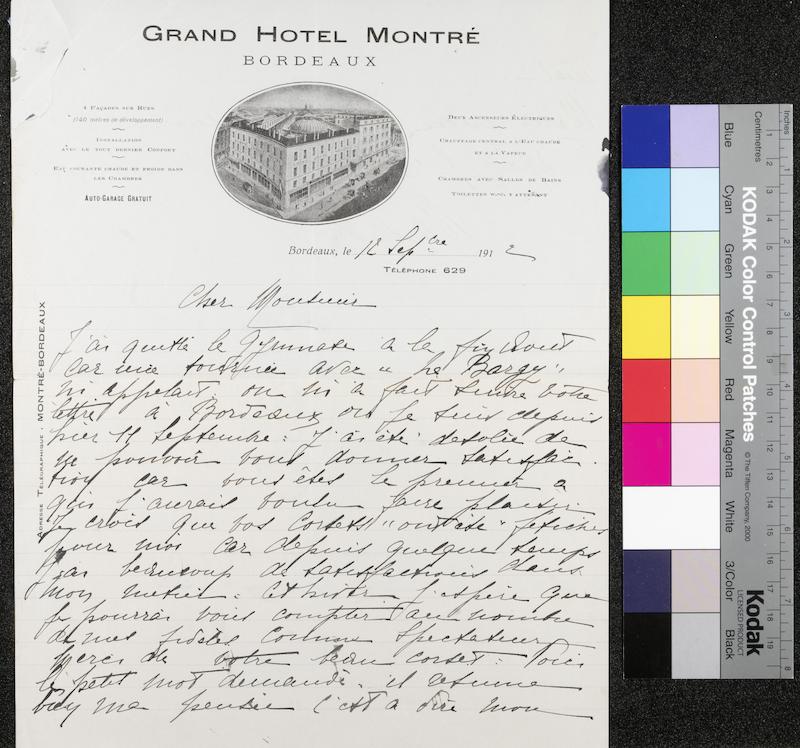 GRAND HOTEL MONTRÉ
BORDEAUX
4 FAÇADES SUR RUES
(140 mètres de développement)
INSTALLATION
AVEC LE TOUT DERNIER CONFORT
EAU COURANTE CHAUDE ET FROIDE DANS
LES CHAMBRES
AUTO-GARAGE GRATUIT
DEUX ASCENSEURS ÉLECTRIQUES
CHAUFFAGE CENTRAL A L'EAU CHAUDE
ET A LA VAPEUR
CHAMBRES AVEC SALLES DE BAINS
TOILETTES W.-C. Y ATTENANT
Bordeaux, le 12 Sepbre 1912
TÉLÉPHONE 629
ADRESSE TÉLÉGRAPHIQUE : MONTRÉ-BORDEAUX
Cher Monsieur
J'ai quitté le Gymnase a la fin Aout
car une tournée avec "Le Bargy"
m'appelait, on m'a fait suivre votre
lettre a Bordeaux ou je suis depuis
hier 11 Septembre : J'ai été desolée de
ne pouvoir vous donner satisfac-
tion car vous êtes le premier a
qui j'aurais voulu faire plaisir
Je crois que vos corsets "ont été" fétiches
pour moi car depuis quelque temps
j'ai beaucoup de satisfactions dans
mon metier : j'espère que
je pourrai vous compter au nombre
de mes fidèles comme spectateur
Merci du votre beau corset : Voici
le petit mot demandé. il resume
bien ma pensée c'est a dire mon
Inches
Centimetres
1 2 3 4 5 6 7 8
1 2 3 4 5 6 7 8 9 10 11 12 13 14 15 16 17 18 19
KODAK Color Control Patches
© The Tiffen Company, 2000
Kodak
LICENSED PRODUCT
Blue
Cyan
Green
Yellow
Red
Magenta
White
3/Color
Black